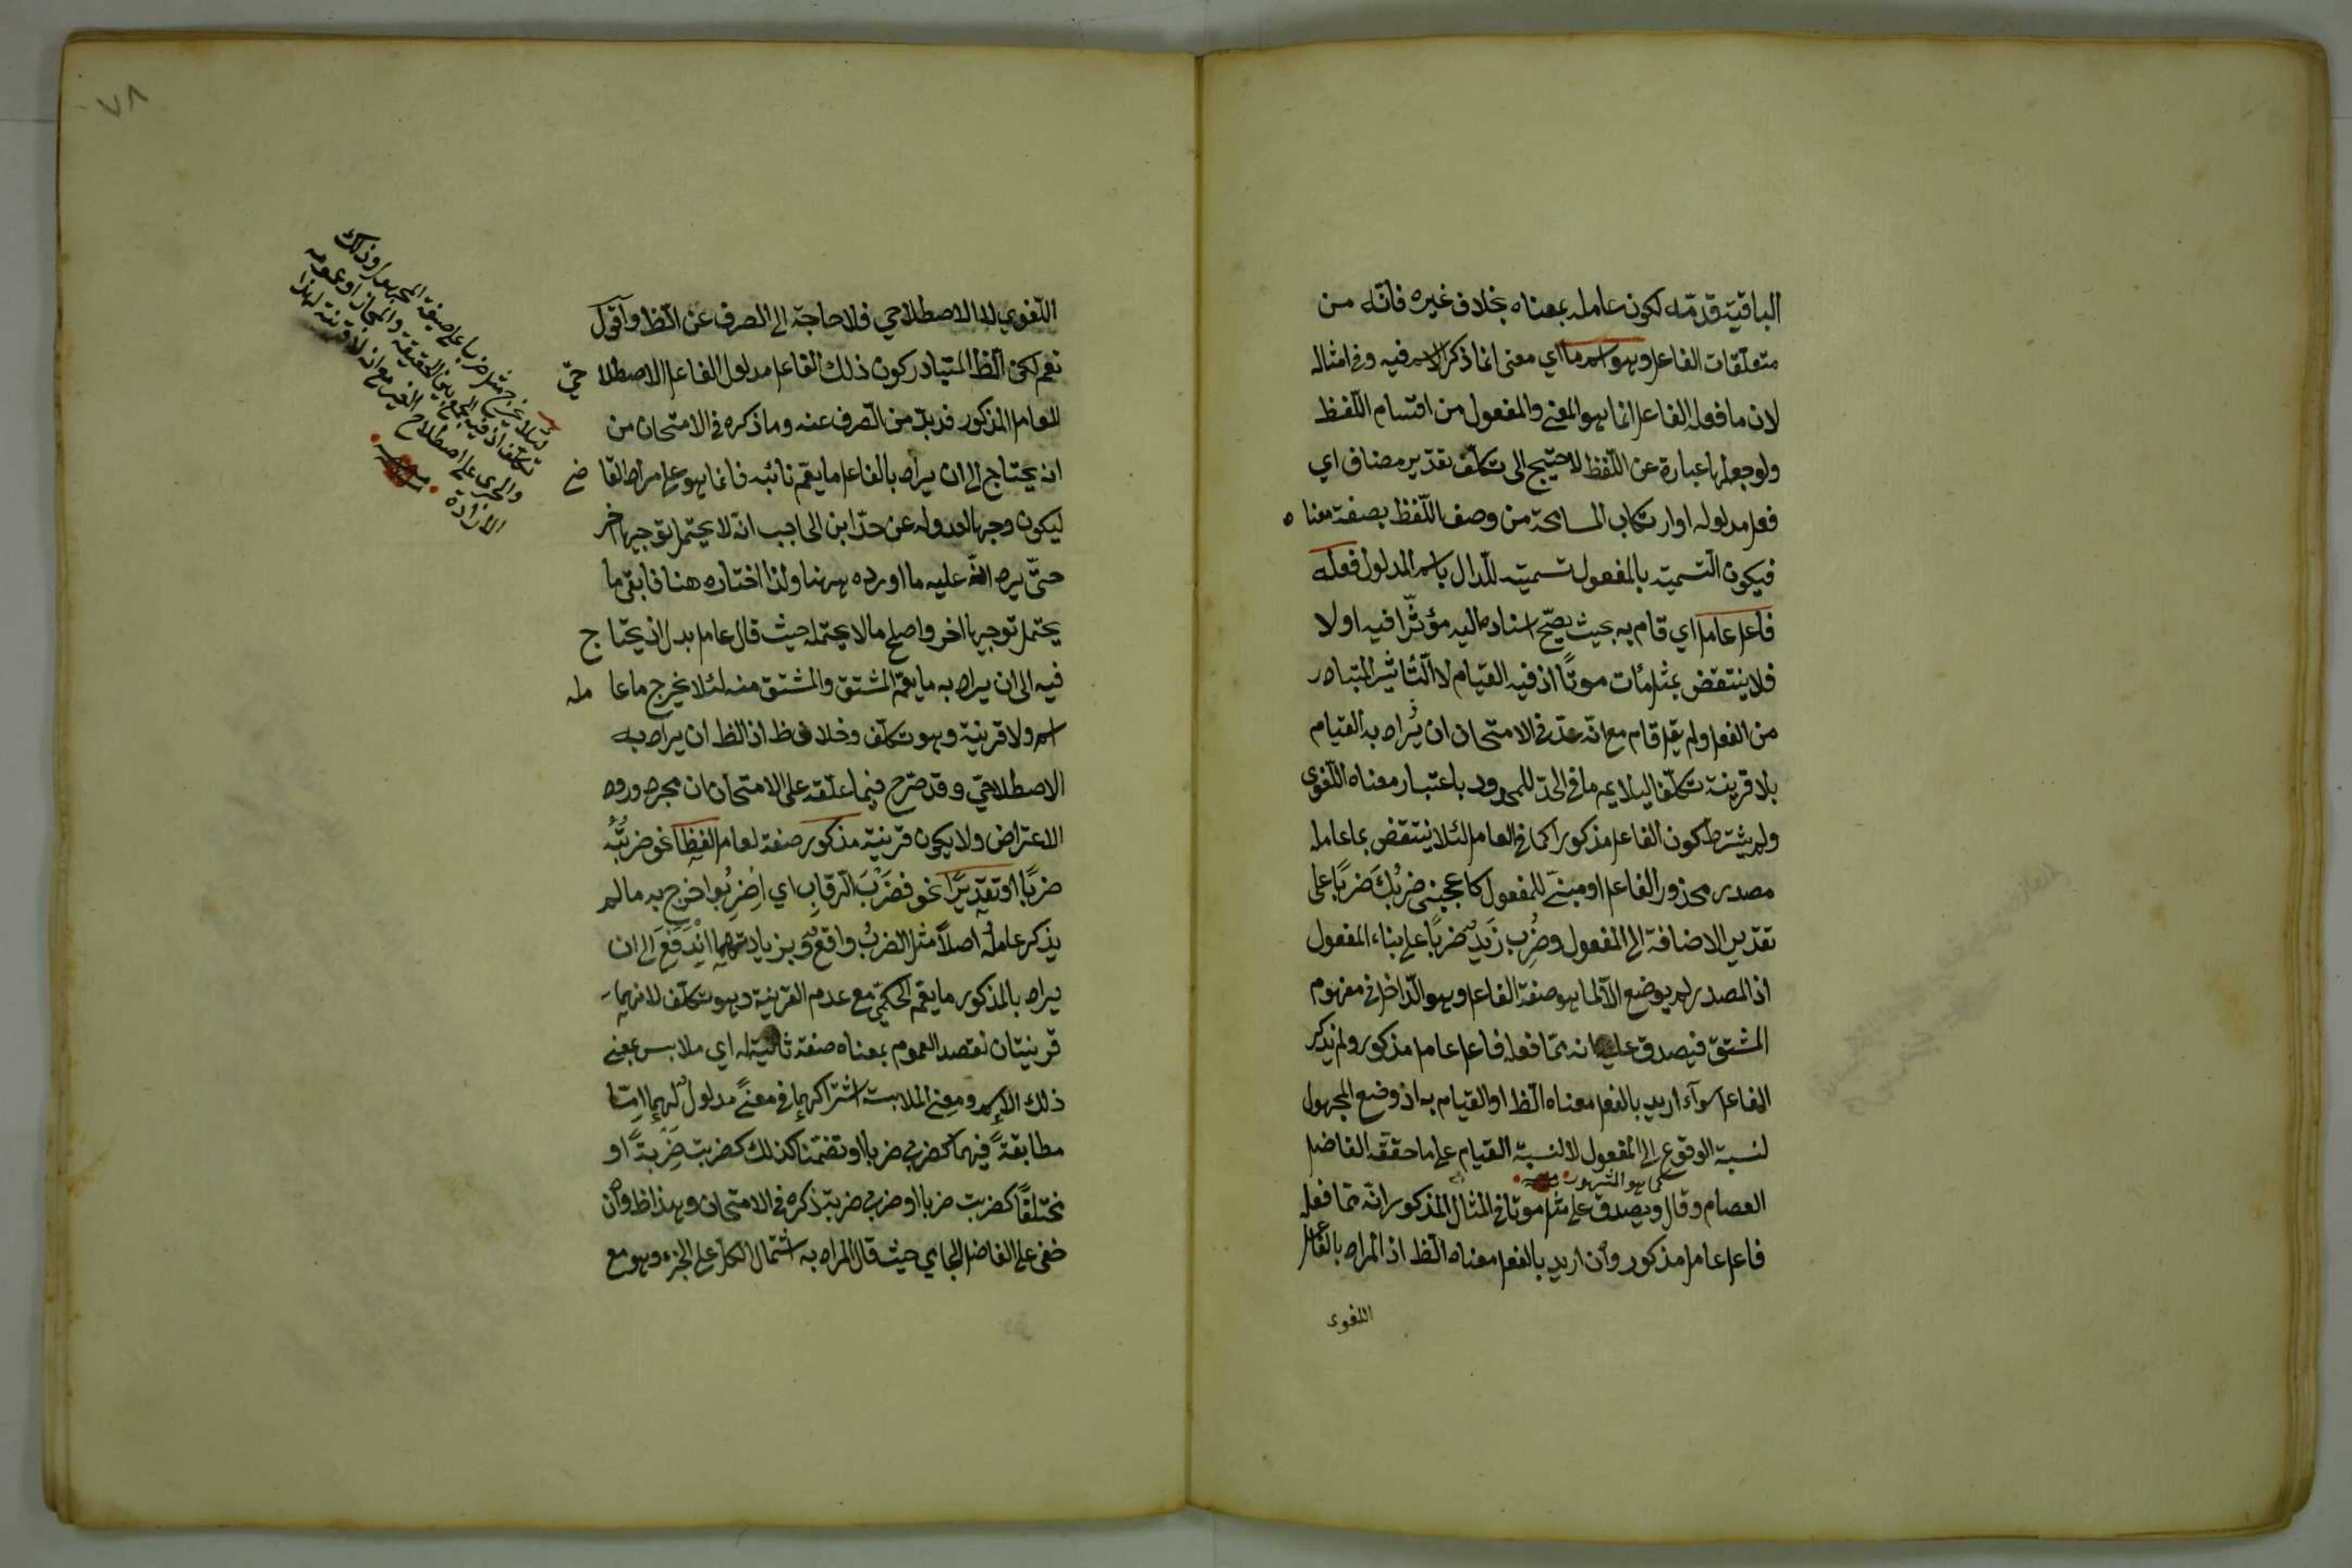 الباقية قدّمه لكون عامله بمعناه بخلاف غيره فانّه من
متعلّقات الفاعل وهو اسم ما اي معنى انما ذكر الاسم فيه وفي امثاله
لان ما فعله الفاعل انما هو المعنى والمفعول من اقسام اللّفظ
ولو جعل ما عبارة عن اللّفظ لاحتيج الى تكلّف تقدير مضاف اي
فعل مدلوله او ارتكاب المسامحة من وصف اللّفظ بصفة معناه
فيكون التسمية بالمفعول تسمية للدال باسم المدلول فعله
فاعل عامل اي قام به بحيث يصحّ اسناده اليه مؤثّرا فيه او لا
فلا ينتقض بمثل مات موتًا اذ فيه القيام لا التّأثير المتبادر
من الفعل ولم يقل قام مع انّه عدّ في الامتحان ان يُراد به القيام
بلا قرينة تكلّفا ليلايم ما في الحدّ للمحدود باعتبار معناه اللّغوي
ولم يشترط كون الفاعل مذكورا كما في العامل لئلا ينتقض بما عامله
مصدر محذوف الفاعل او مبنيّ للمفعول كاعجبني ضربُكَ ضربًا على
تقدير الاضافة الى المفعول وضُرِب زَيدٌ ضربًا على بناء المفعول
اذ المصدر لم يوضع الّا لما هو صفة الفاعل وهو الدّاخل في مفهوم
المشتق فيصدق عليه انه ممّا فعله فاعل عامل مذكور ولم يذكر
الفاعل سوآء اريد بالفعل معناه الظ او القيام به اذ وضع المجهول
لنسبة الوقوع الى المفعول لا لنسبة القيام على ما حققه الفاضل
كما هو المشهور منه
العصام وقال ويصدق على مثل موتا في المثال المذكور انّه ممّا فعله
فاعل عامل مذكور وان اريد بالفعل معناه الظ اذ المراد بالفاعل
اللغوى
٧٨
اللّغوي لا الاصطلاحي فلا حاجة الى الصرف عن الظ واقول
نعم لكن الظ المتبادر كون ذلك الفاعل مدلول الفاعل الاصطلاحيّ
للعامل المذكور فلا بدّ من الصّرف عنه وما ذكره في الامتحان من
انه يحتاج الى ان يراد بالفاعل ما يعم نائبه فانما هو على مراد القاضي
ليكون وجها لعدوله عن حدّ ابن الحاجب انّه لا يحتمل توجيها اخر
حتّى يرد انّه عليه ما اورده ههنا ولذا اختاره هنا فابقى ما
يحتمل توجيها اخر واصلح ما لا يحتمله حيث قال عامل بدل ان يحتاج
فيه الى ان يراد به ما يعمّ المشتق والمشتق منه لئلا يخرج ما عامله
اسم ولا قرينة وهو تكلّف وخلاف ظ اذ الظ ان يراد به
الاصطلاحيّ وقد صرّح فيما علّقه على الامتحان ان مجرد ورود
الاعتراض ولا يكون قرينة مذكور صفة لعامل لفظا نحو ضربتُهُ
ضربًا او تقديرًا نحو فضَرْبَ الرّقابِ اي اضربُوا خرج به ما لم
يذكر عامله اصلًا مثل الضربُ واقعٌ وبزيادتهما اندفع الى ان
يراد بالمذكور ما يعمّ الحكميّ مع عدم القرينة وهو تكلّف لانهما
قرينتان لقصد العموم بمعناه صفة ثانية له اي ملابس بمعنى
ذلك الاسم ومعنى الملابسة اشتراكهما في معنًى مدلولٌ لهما امّا
مطابقةً فيهما كضربي ضربا او تضمّنا كذلك كضربت ضَرْبةً او
مختلفًا كضربت ضربا او ضربي ضربة ذكره في الامتحان وهذا ظ وان
خفى على الفاضل الجامي حيث قال المراد به اشتمال الكل على الجزء وهو مع
لئلا يخرج مثل ضربا على صيغة المجهول وذلك
تكلّف اذ فيه الجمع بين الحقيقة والمجاز او عمومه
والجرى على اصطلاح الغير مع انه لا قرينة لهذا
الارادة منه